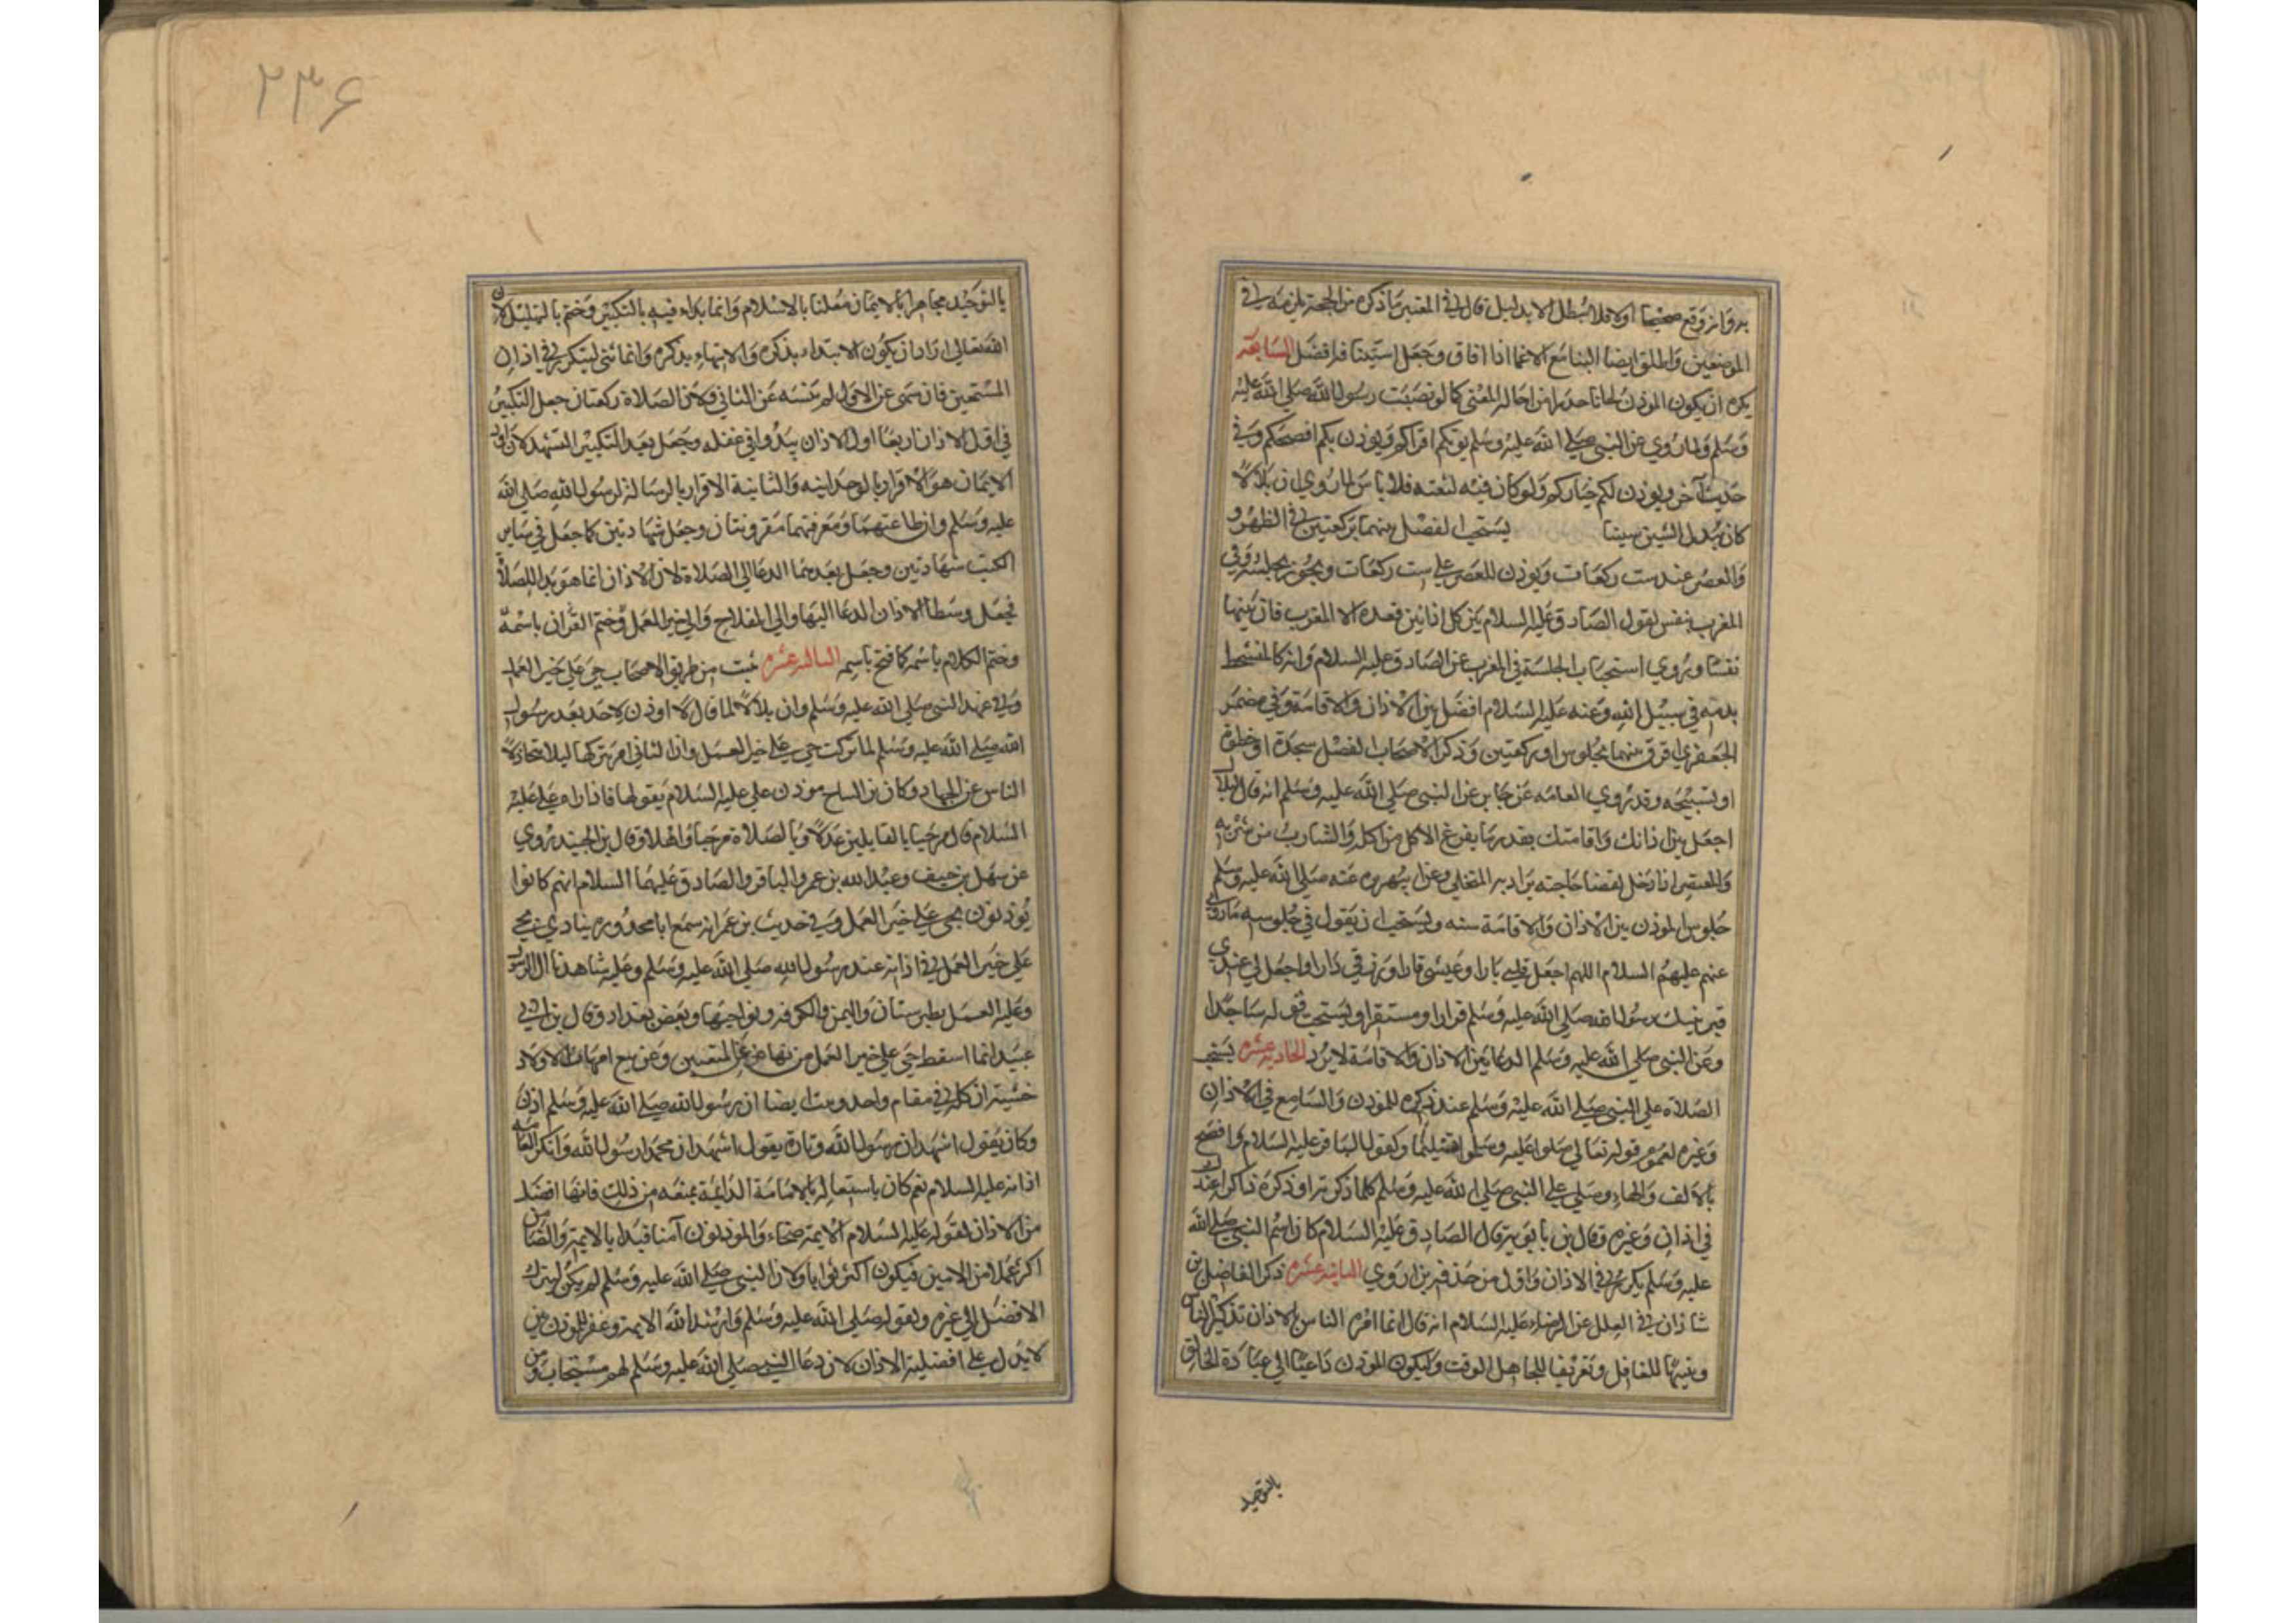 به وان وقع صحيحا اولا فلا يبطل الا بدليل قال في المعتبر ما ذكره من الحجة يلزمه في
الموضعين واطلق ايضا البنا مع الاغما اذا افاق وجعل استينافه افضل السابعة
يكره ان يكون الموذن لحانا حذرا من احاله المعنى كما لو نصبت رسول الله صلى الله عليه
وسلم ولما روي عن النبي صلى الله عليه وسلم يومكم اقراكم ويوذن بكم افصحكم وفي
حديث آخر ويوذن لكم خياركم ولو كان فيه لثغه فلا باس لما روي ان بلالا
كان يبدل الشين سينا يستحب الفصل بينهما بركعتين في الظهر و
والعصر عند ست ركعات ويوذن للعصر على ست ركعات ويجوز بجلسه وفي
المغرب بنفس لقول الصادق عليه السلام بين كل اذانين قعدة الا المغرب فان بينهما
نفسا وروي استحباب الجلسة في المغرب عن الصادق عليه السلام وانه كالمتشحط
بدمه في سبيل الله وعنه عليه السلام افضل بين الاذان والاقامة وفي مضمر
الجعفري افرق بينهما بجلوس او ركعتين وذكر الاصحاب الفصل سجدة او خطوة
او تسبيحه وقد روي العامه عن جابر عن النبي صلى الله عليه وسلم انه قال لبلال
اجعل بين اذانك واقامتك بقدر ما يفرغ الاكل من اكله والشارب من شربه
والمعتصر اذا دخل لقضا حاجته عنه صلى الله عليه وسلم
جلوس الموذن بين الاذان والاقامة سنه ويستحب ان يقول في جلوسه ما روي
عنهم عليهم السلام اللهم اجعل قلبي بارا وعيشي قارا ورزقي دارا واجعل لي عند
قبر نبيك رسول الله صلى الله عليه وسلم قرارا ومستقرا ويستحب قوله ساجدا
وعن النبي صلى الله عليه وسلم الدعا بين الاذان والاقامة لا يرد الحادية عشره يستحب
الصلاة على النبي صلى الله عليه وسلم عند ذكره للموذن والسامع في الاذان
وغيره لعموم قوله تعالى صلوا عليه وسلموا تسليما وكقول الباقر عليه السلام وافصح
بالالف والهاء وصلي على النبي صلى الله عليه وسلم كلما ذكرته او ذكره ذاكر عندك
في اذان وغيره وقال بن بابويه قال الصادق عليه السلام كان اسم النبي صلى الله
عليه وسلم يكرر في الاذان واول من حذفه بن اروي الثانية عشره ذكر الفاضل بن
شاذان في العلل عن الرضاء عليه السلام انه قال انما امر الناس بالاذان تذكيرا للناس
وتنبيها للغافل وتعريفا للجاهل الوقت وليكون الموذن داعيا الى عبادة الخالق
بالتوحيد
٢٣۶
بالتوحيد مجاهرا بالايمان معلنا بالاسلام وانما بداء فيه بالتكبير وختم بالتهليل لان
الله تعالى اراد ان يكون الابتداء بذكره والانتهاء بذكره وانما ثنى ليتكرر في اذان
المستمعين فان سهى عن الاول لم ينسه عن الثاني ولان الصلاة ركعتان جعل التكبير
في اول الاذان اربعا اول الاذان يبدوا في غفلة وجعل بعد التكبير التشهد لان اول
الايمان هو الاقرار بالوحدانيه والثانية الاقرار بالرسالة لرسول الله صلى الله
عليه وسلم وان طاعتهما ومعرفتهما مقرونتان وجعل شهادتين كما جعل في ساير
الكتب شهادتين وجعل بعدهما الدعا الى الصلاة لان الاذان انما هو نداء للصلاة
فجعل وسط الاذان الدعا اليها والى الفلاح والى خير العمل وختم القران باسمه
وختم الكلام باسمه كما فتح باسمه الثالثه عشره ثبت من طريق الاصحاب حي على خير العمل
وفي عهد النبي صلى الله عليه وسلم وان بلالا لما قال لا اوذن لاحد بعد رسول
الله صلى الله عليه وسلم لما تركت حي على خير العمل وان الثاني امر بتركها ليلا يتخاذل
الناس عن الجهاد وكان بن النباح موذن علي عليه السلام يقولها فاذا راه علي عليه
السلام قال مرحبا بالقايلين عدلا وبالصلاة مرحبا واهلا وقال بن الجنيد روي
عن سهل بن حنيف وعبد الله بن عمر والباقر والصادق عليهما السلام انهم كانوا
يوذنون بحي على خير العمل وفي حديث بن عمر انه سمع ابا محذوره ينادي بحي
على خير العمل في اذانه عند رسول الله صلى الله عليه وسلم وعليه شاهدنا ال الرسول
وعليه العمل بطبرستان واليمن والكوفه ونواحيها وبعض بغداد وقال بن ابي
عبيد انما اسقط حي على خير العمل من نهى عن المتعتين وعن بيع امهات الاولاد
خشية ان كله في مقام واحد ايضا ان رسول الله صلى الله عليه وسلم اذن
وكان يقول اشهد ان رسول الله وتارة يقول اشهد ان محمدا رسول الله وانكر العامه
اذانه عليه السلام نعم كان باستعاله بالامامة الدائمة بمنعه من ذلك فانها افضل
من الاذان لقوله عليه السلام الايمة ضمناء والموذنون آمنا فبداء بالايمة والضامن
اكثر عملا من الامين فيكون اكثر ثوابا ولان النبي صلى الله عليه وسلم لم يكن ليترك
الافضل الى غيره ولقوله صلى الله عليه وسلم وارشد الله الايمة وغفر للموذنين
لا يدل على افضلية الاذان لان دعا النبي صلى الله عليه وسلم لهم مستجاب